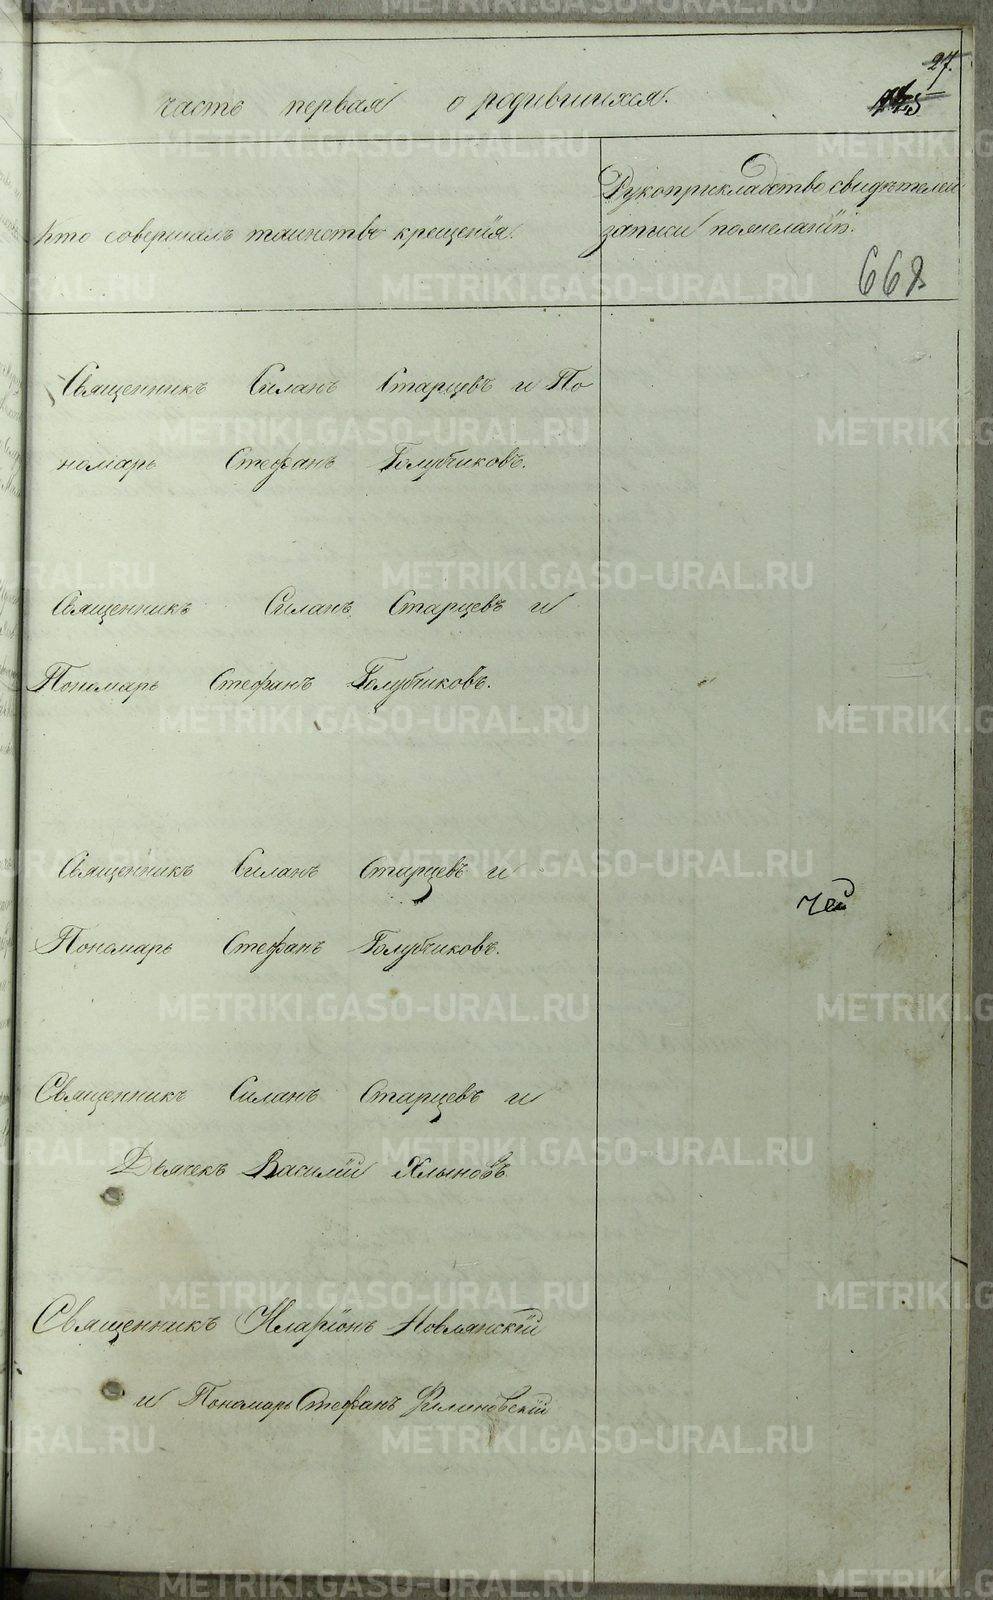 27.
часть первая о родившихся.
Кто совершалъ таинство крещенія.
Рукоприкладство свидѣтелей
записи по желанію.
668
Священникъ Силанъ Старцевъ и По
номарь Стефанъ Голубчиковъ.
Священникъ Силанъ Старцевъ и
Пономарь Стефанъ Голубчиковъ.
Священникъ Силанъ Старцевъ и
Пономарь Стефанъ Голубчиковъ.
чей
Священникъ Силанъ Старцевъ и
Дьячекъ Василій Хлыновъ
Священникъ Иларіонъ
и Пономарь Стефанъ
METRIKI.GASO-URAL.RU